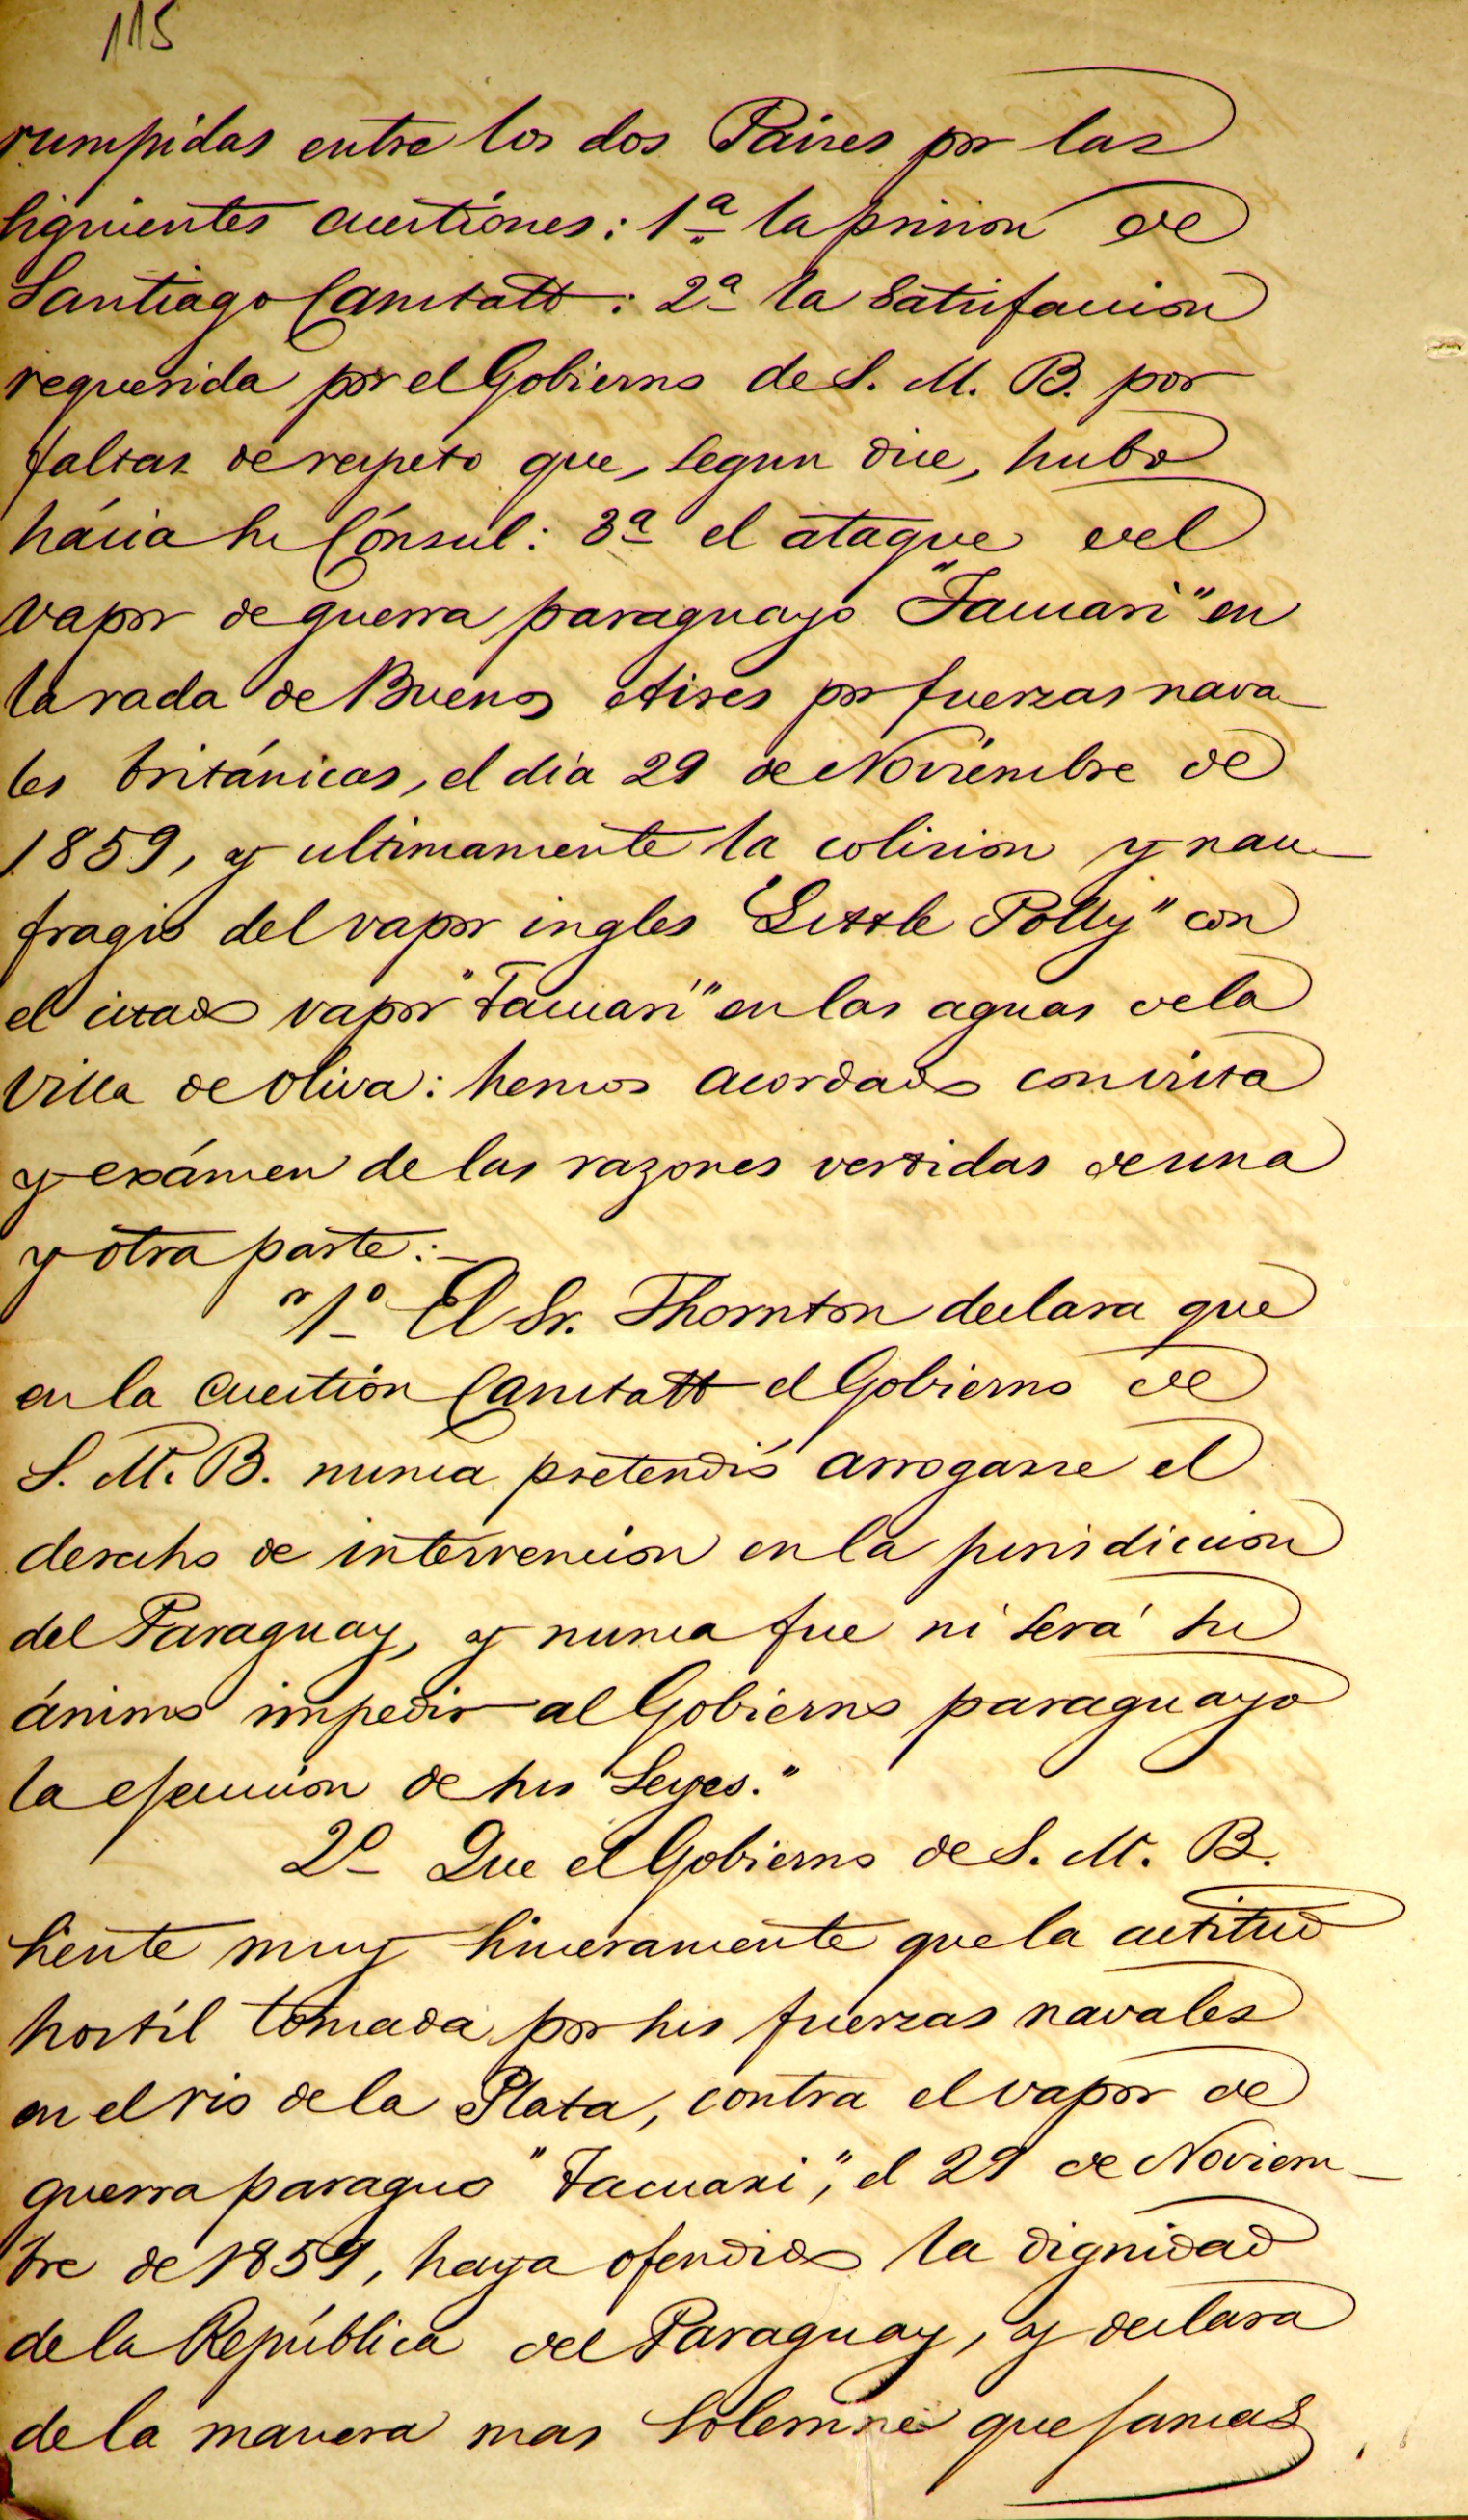 115
rumpidas entre los dos Paises por las
siguientes cuestiones: 1ª la prision de
Santiago Canstatt: 2ª la satisfaccion
requerida por el Gobierno de S. M. B. por
faltas de respeto que, segun dice, hubo
hácia su Cónsul: 3ª el ataque del
vapor de guerra paraguayo "Tacuari" en
la rada de Buenos Aires por fuerzas nava-
les británicas, el dia 29 de Noviembre de
1859, y ultimamente la colision y nau-
fragio del vapor ingles "Little Polly" con
el citado vapor "Tacuari" en las aguas de la
Villa de Oliva: hemos acordado con vista
y exámen de las razones vertidas de una
y otra parte:-
"1º El Sr. Thornton declara que
en la cuestion Canstatt el Gobierno de
S. M. B. nunca pretendió arrogarse el
derecho de intervencion en la jurisdiccion
del Paraguay, y nunca fue ni será su
ánimo impedir al Gobierno paraguayo
la ejecucion de sus Leyes."
2º Que el Gobierno de S. M. B.
siente muy sinceramente que la actitud
hostil tomada por sus fuerzas navales
en el rio de la Plata, contra el vapor de
guerra paraguo "Tacuari", el 29 de Noviem-
bre de 1859, haya ofendido la dignidad
de la República del Paraguay, y declara
de la manera mas solemne que jamas